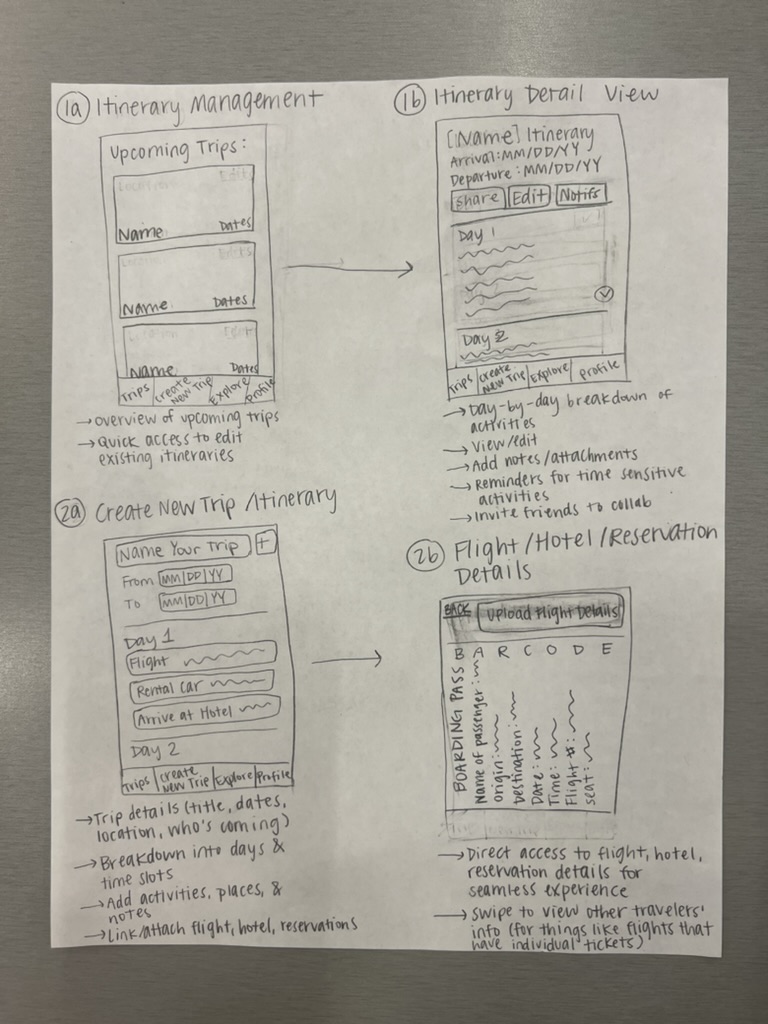 1a Itinerary Management
Upcoming Trips:
Location Edit
Name Dates
Location Edits
Name Dates
Location Edit
Name Dates
Trips Create New Trip Explore Profile
→ overview of upcoming trips
→ Quick access to edit
existing itineraries
1b Itinerary Detail View
[Name] Itinerary
Arrival: MM/DD/YY
Departure: MM/DD/YY
Share Edit Notifs
Day 1
Day 2
Trips Create New Trip Explore Profile
→ Day-by-day breakdown of
activities
→ View/edit
→ Add notes/attachments
→ Reminders for time sensitive
activities
→ Invite friends to collab
2a Create New Trip/Itinerary
Name Your Trip +
From MM/DD/YY
To MM/DD/YY
Day 1
Flight
Rental Car
Arrive at Hotel
Day 2
Trips Create New Trip Explore Profile
→ Trip details (title, dates,
location, who's coming)
→ Breakdown into days &
time slots
→ Add activities, places, &
notes
→ Link/attach flight, hotel, reservations
2b Flight/Hotel/Reservation
Details
BACK Upload Flight Details
B A R C O D E
BOARDING PASS
Name of passenger:
Origin:
Destination:
Date:
Time:
Flight #:
seat:
→ Direct access to flight, hotel,
reservation details for
seamless experience
→ Swipe to view other travelers'
info (for things like flights that
have individual tickets)